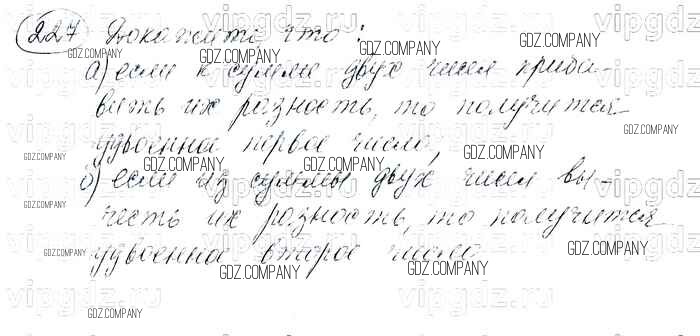 227 Докажите, что:
а) если к сумме двух чисел приба-
вить их разность, то получится
удвоенное первое число,
б) если из суммы двух чисел вы-
честь их разность, то получится
удвоенное второе число.
GDZ.COMPANY
vipgdz.ru